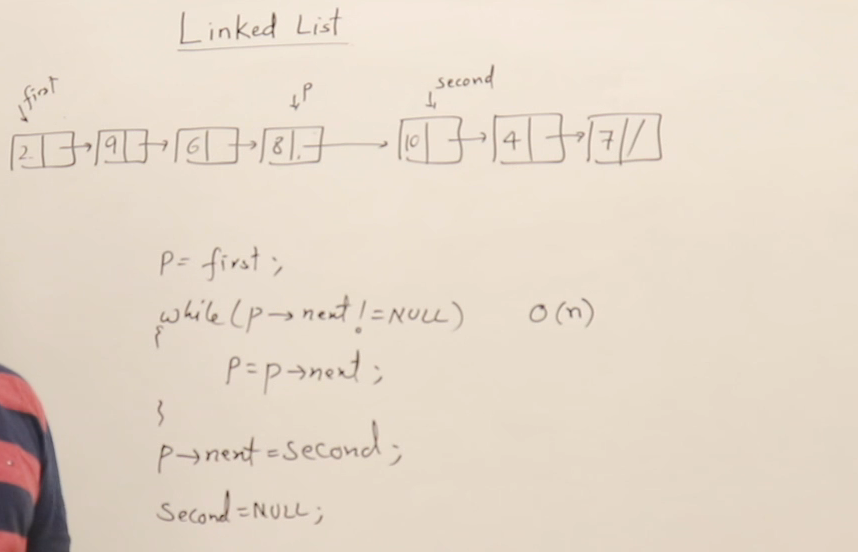 Linked List
first
P
second
2 9 6 8 10 4 7
P = first;
while(p→next!=NULL) O(n)
{
P=p→next;
}
p→next=second;
Second=NULL;